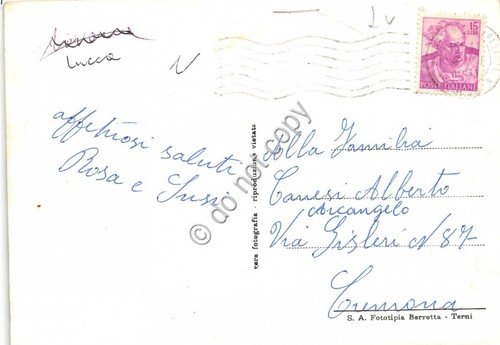 Lucca
Lv
V
15
LIRE
POSTE ITALIANE
affettuosi saluti
Rosa e Susi
Alla Familia
Canesi Alberto
Arcangelo
Via Gisleri N 87
Cremona
vera fotografia - riproduzione vietata
S. A. Fototipia Berretta - Terni
© do not copy